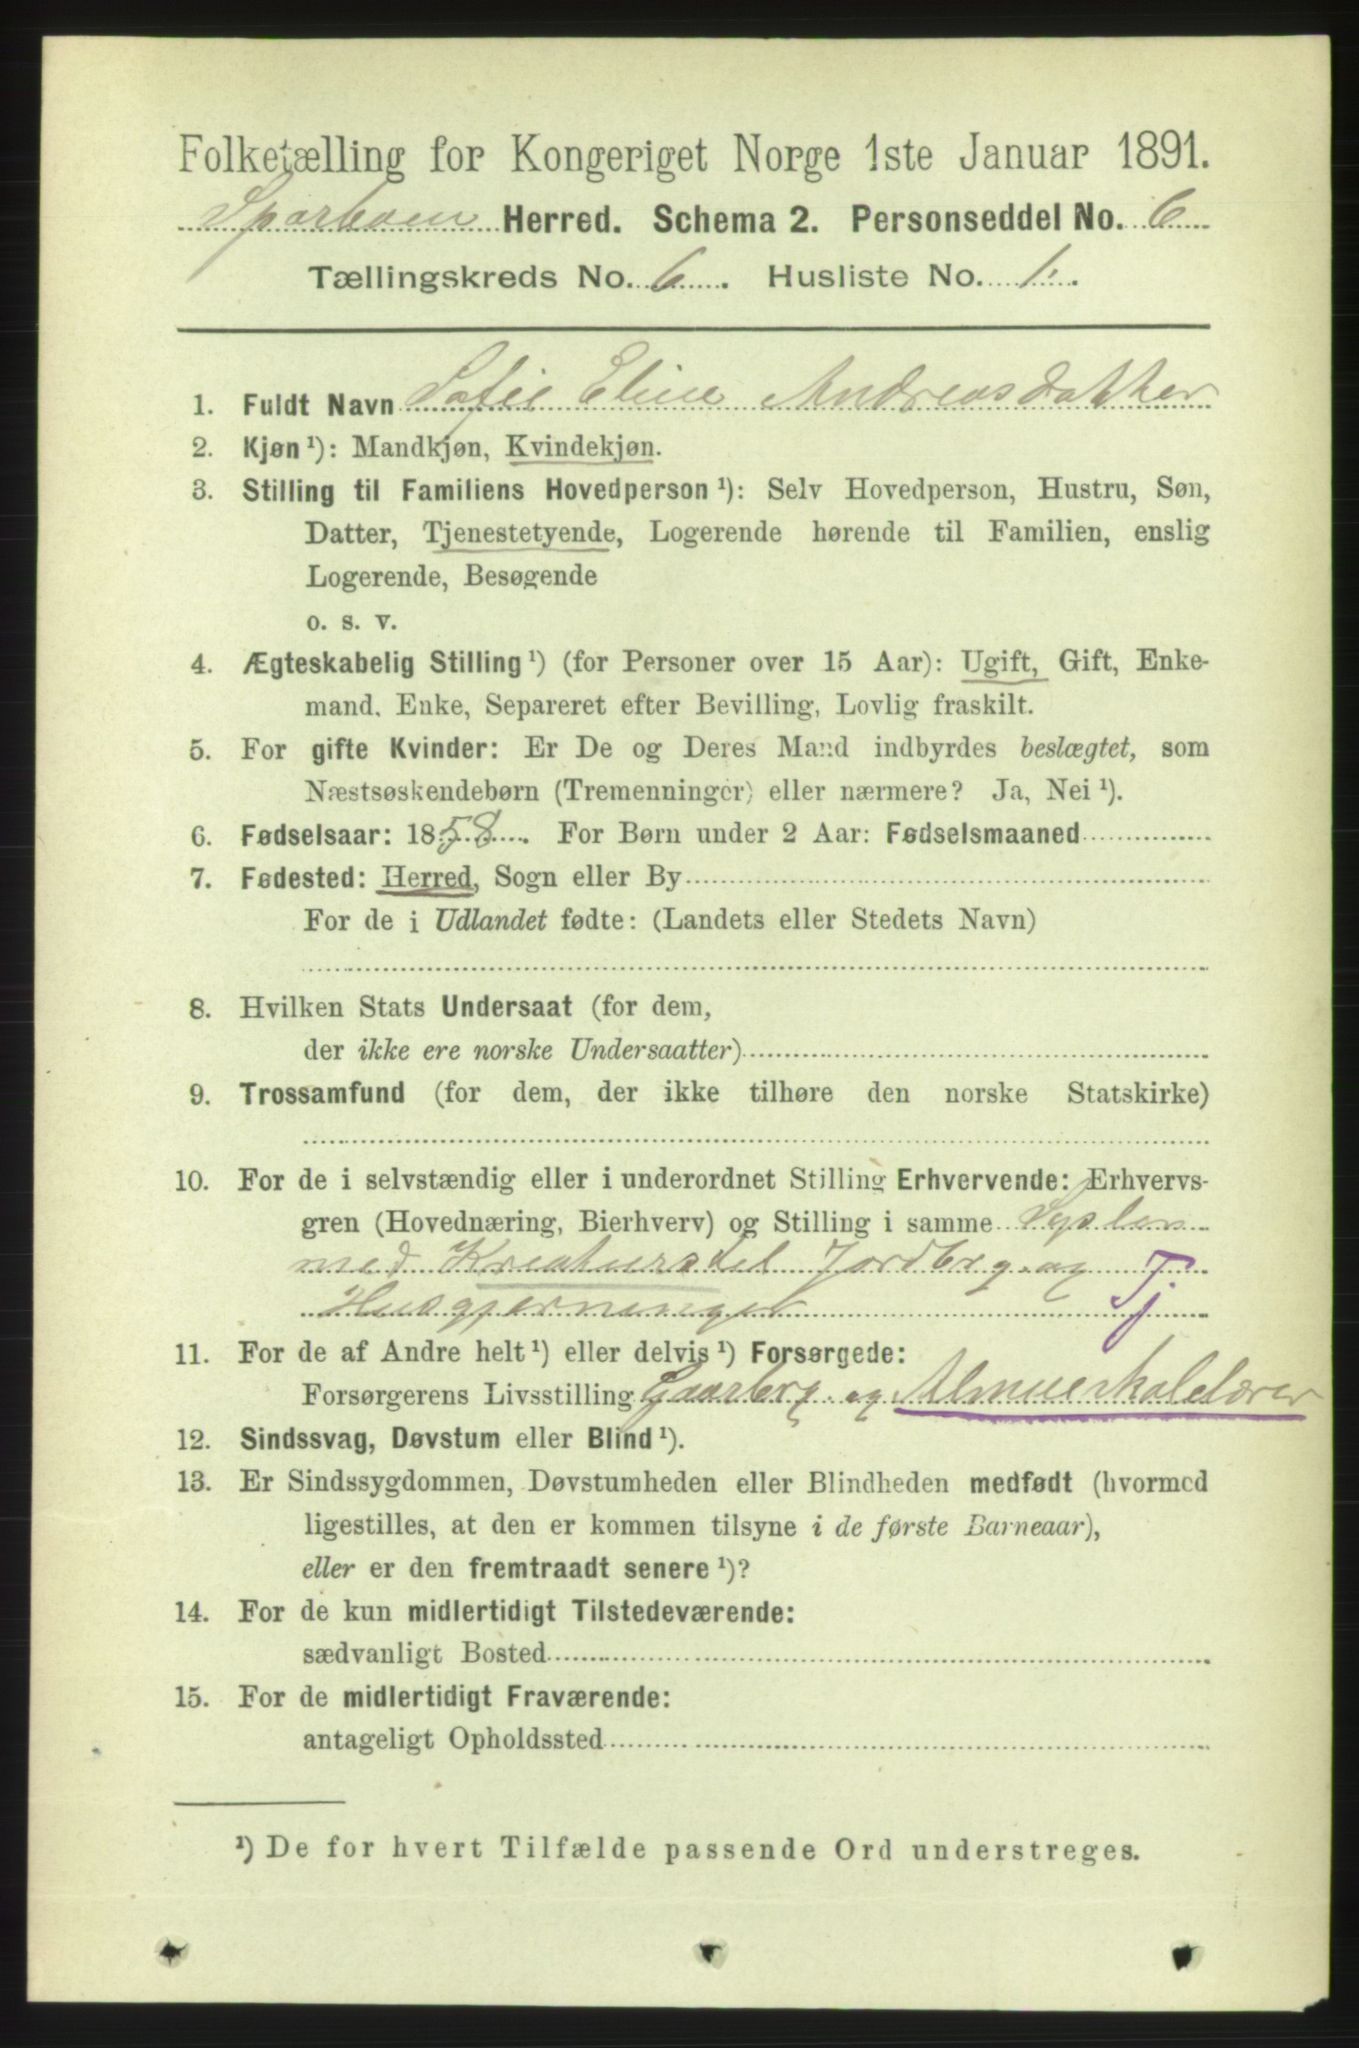 Folketælling for Kongeriget Norge 1ste Januar 1891.
Sparboen Herred. Schema 2. Personseddel No. 6
Tællingskreds No. 6. Husliste No. 1.
1. Fuldt Navn Sofie Eline Andreasdatter
2. Kjøn ¹): Mandkjøn, Kvindekjøn.
3. Stilling til Familiens Hovedperson ¹): Selv Hovedperson, Hustru, Søn,
Datter, Tjenestetyende, Logerende hørende til Familien, enslig
Logerende, Besøgende
o. s. v.
4. Ægteskabelig Stilling ¹) (for Personer over 15 Aar): Ugift, Gift, Enke-
mand, Enke, Separeret efter Bevilling, Lovlig fraskilt.
5. For gifte Kvinder: Er De og Deres Mand indbyrdes beslægtet, som
Næstsøskendebørn (Tremenninger) eller nærmere? Ja, Nei ¹).
6. Fødselsaar: 1858. For Børn under 2 Aar: Fødselsmaaned
7. Fødested: Herred, Sogn eller By
For de i Udlandet fødte: (Landets eller Stedets Navn)
8. Hvilken Stats Undersaat (for dem,
der ikke ere norske Undersaatter)
9. Trossamfund (for dem, der ikke tilhøre den norske Statskirke)
10. For de i selvstændig eller i underordnet Stilling Erhvervende: Erhvervs-
gren (Hovednæring, Bierhverv) og Stilling i samme Syslen
med Kreaturstel Jordbrg. og Tj
Husgjerninger
11. For de af Andre helt ¹) eller delvis ¹) Forsørgede:
Forsørgerens Livsstilling Gaarbrg. og Almueskolelærer
12. Sindssvag, Døvstum eller Blind ¹).
13. Er Sindssygdommen, Døvstumheden eller Blindheden medfødt (hvormed
ligestilles, at den er kommen tilsyne i de første Barneaar),
eller er den fremtraadt senere ¹)?
14. For de kun midlertidigt Tilstedeværende:
sædvanligt Bosted
15. For de midlertidigt Fraværende:
antageligt Opholdssted
¹) De for hvert Tilfælde passende Ord understreges.